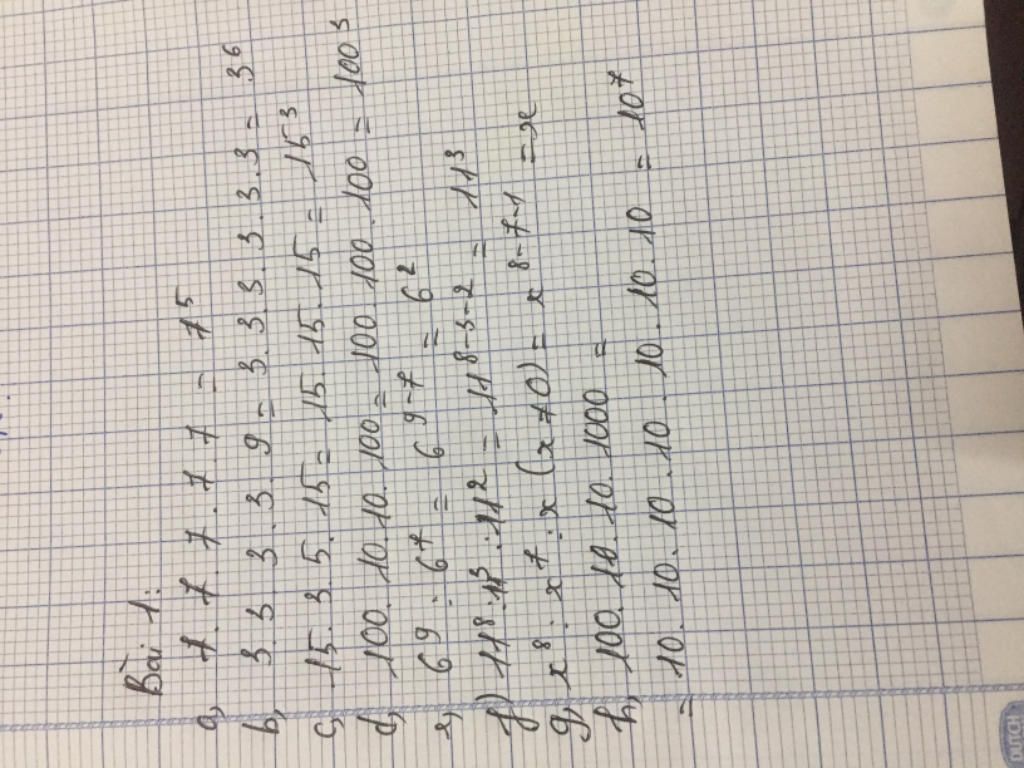 Bài 1:
a, 7. 7. 7. 7. 7 = 7⁵
b, 3. 3. 3. 3. 9 = 3. 3. 3. 3. 3. 3 = 3⁶
c, 15. 3. 5. 15 = 15. 15. 15 = 15³
d, 100. 10. 10. 100 = 100. 100. 100 = 100³
e, 6⁹ : 6⁷ = 6⁹⁻⁷ = 6²
f) 11⁸ : 11³ : 11² = 11⁸⁻³⁻² = 11³
g, x⁸ : x⁷ : x (x ≠ 0) = x⁸⁻⁷⁻¹ = x
h, 100. 10. 10. 1000 =
= 10. 10. 10. 10. 10. 10. 10 = 10⁷